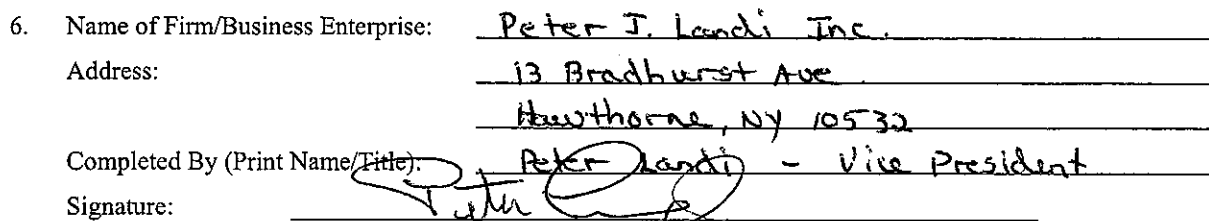 6. Name of Firm/Business Enterprise: Peter J. Landi Inc.
Address: 13 Bradhurst Ave
Hawthorne, NY 10532
Completed By (Print Name/Title): Peter Landi - Vice President
Signature: Peter